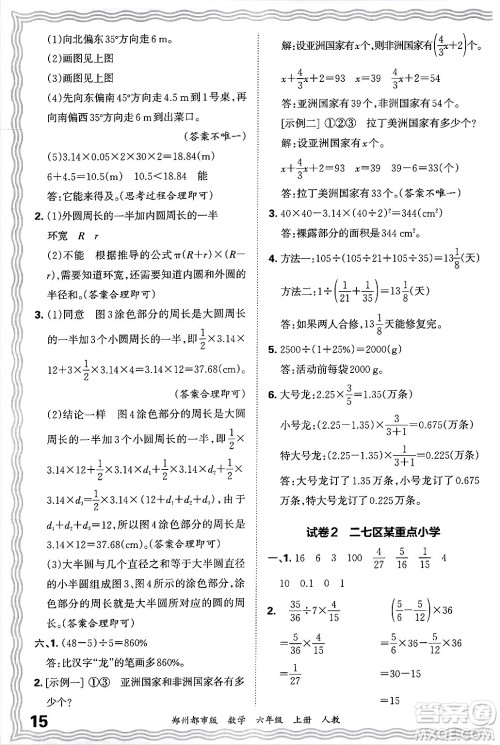 (1)向北偏东35°方向走6 m。
(2)画图见上图
(3)画图见上图
(4)先向东偏南45°方向走4.5 m到1号桌，再
向南偏西55°方向走2 m到出菜口。
(答案不唯一)
(5)3.14×0.05×2×30×2=18.84(m)
6+4.5=10.5(m) 10.5<18.84
答：它能来。(思考过程合理即可)
2.(1)外圆周长的一半加内圆周长的一半
环宽 R r
(2)不能 根据推导的公式π(R+r)×(R-r)，
还需要知道环宽，也可以知道内圆和外圆的
半径和。(答案合理即可)
3.(1)同意 图3涂色部分的周长是大圆周长
的一半加3个小圆周长的一半，即1/2×3.14×
12+3×1/2×3.14×12÷3=37.68(cm)。
(答案合理即可)
(2)结论一样 图4涂色部分的周长是大圆
周长的一半加3个小圆周长的一半，即1/2×
3.14×12+1/2×3.14×d₁+1/2×3.14×d₂+
1/2×3.14×d₃=1/2×3.14×(12+d₁+d₂+d₃)，由
于d₁+d₂+d₃=12，所以图4涂色部分的周长
=37.68 cm。(答案合理即可)
(3)大半圆与在它直径上首尾相连的几个小
半圆组成图3和图4的涂色部分，涂色部分
的周长等于大半圆所在圆的周长。
六、1.(48-5)÷5=860%
答：比汉字“龙”的笔画多860%。
2.[示例一]①②③ 亚洲国家和非洲国家各有
多少个?
解：设亚洲国家有x个，则非洲国家有(4/3x+2)个。
x+4/3x+2=93 x=39 4/3x+2=54
答：亚洲国家有39个，非洲国家有54个。
[示例二]①②③ 拉丁美洲国家有多少个?
x+4/3x+2=93 x=39 39-6=33(个)
答：拉丁美洲国家有33个。
3.40×40-3.14×(40÷2)²=344(cm²)
答：裸露部分的面积是344 cm²。
4.方法一：105÷(105÷21+105÷35)=13 1/8(天)
方法二：1÷(1/21+1/35)=1=13 1/8(天)
答：13 1/8天能修复完。
5.2500÷(1-20%)=2000(g)
答：活动前每袋2000 g。
6.大号龙：2.25×3/5=1.35(万条)
小号龙：(2.25-1.35)×3/(3+1)=0.675(万条)
特大号龙：(2.25-1.35)×1/(3+1)=0.225(万条)
答：大号龙订了1.35万条，小号龙订了0.675
万条，特大号龙订了0.225万条。
试卷2 二七区某重点小学
一、1.16 6 3 100 4/27 5/16 1/15 4
10 0.1 0 1
2. 35/36÷7×4/5 (5/6-5/12)×36
=5/36×4/5 =5/6×36-5/12×36
=1/9 =30-15
=15
15 郑州都市版 数学 六年级 上册 人教